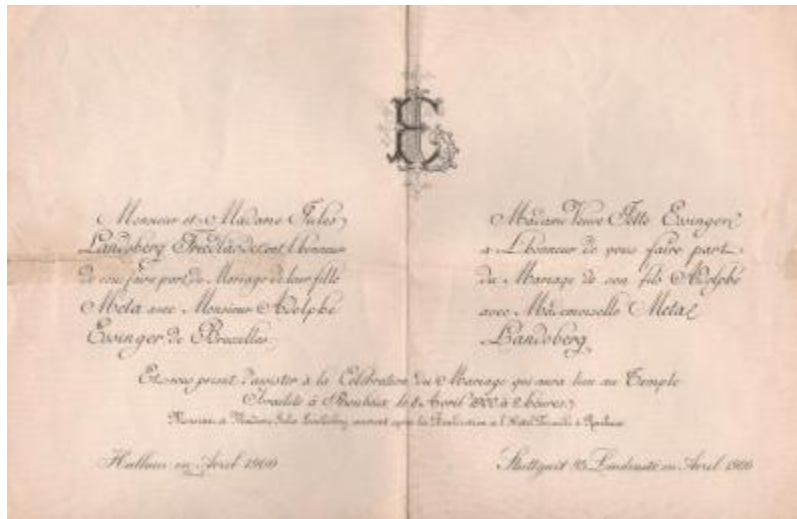 Monsieur et Madame Jules
Landsberg Friedlander ont l'honneur
de vous faire part du Mariage de leur fille
Meta avec Monsieur Adolphe
Essinger de Bruxelles
Madame Veuve Jette Essinger
a l'honneur de vous faire part
du Mariage de son fils Adolphe
avec Mademoiselle Meta
Landsberg
Et vous prient d'assister à la Célébration du Mariage qui aura lieu au Temple
Israélite à Roubaix le 8 Avril 1900 à 2 heures
Monsieur et Madame Jules Landsberg après la à l'Hôtel à
Halluin en Avril 1900
Stuttgart en Avril 1900